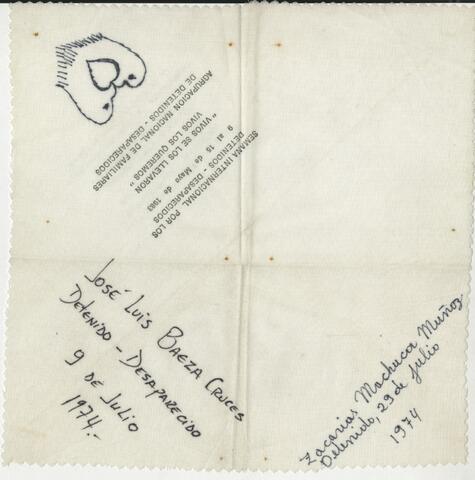 SEMANA INTERNACIONAL POR LOS
DETENIDOS - DESAPARECIDOS
9 al 15 de Mayo de 1983
" VIVOS SE LOS LLEVARON
VIVOS LOS QUEREMOS "
AGRUPACION NACIONAL DE FAMILIARES
DE DETENIDOS - DESAPARECIDOS
José Luis Baeza Cruces
Detenido - Desaparecido
9 de Julio
1974.-
Zacarias Machuca Muñoz
Detenido, 29 de Julio
1974